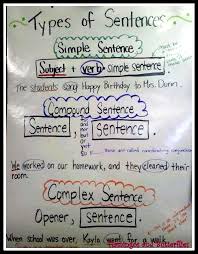 Types of Sentences
Simple Sentence
Subject + verb = simple sentence
The students sang Happy Birthday to Mrs. Dunn.
Compound Sentence
Sentence, and sentence.
but
or
yet
so
these are called coordinating conjunctions
We worked on our homework, and they cleaned their
room.
Complex Sentence
Opener, sentence.
When school was over, Kayla went for a walk.
and Butterflies